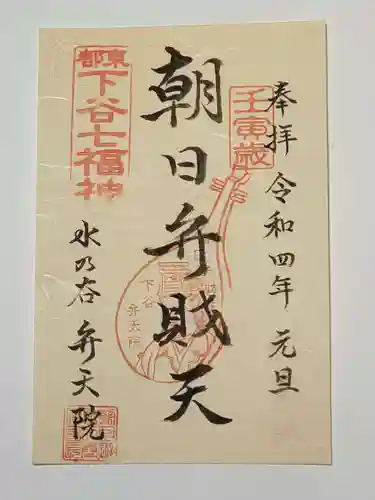 奉拝 令和四年 元旦
壬寅歳
朝日弁財天
東都
下谷七福神
水乃谷 弁天院
下谷
弁天院